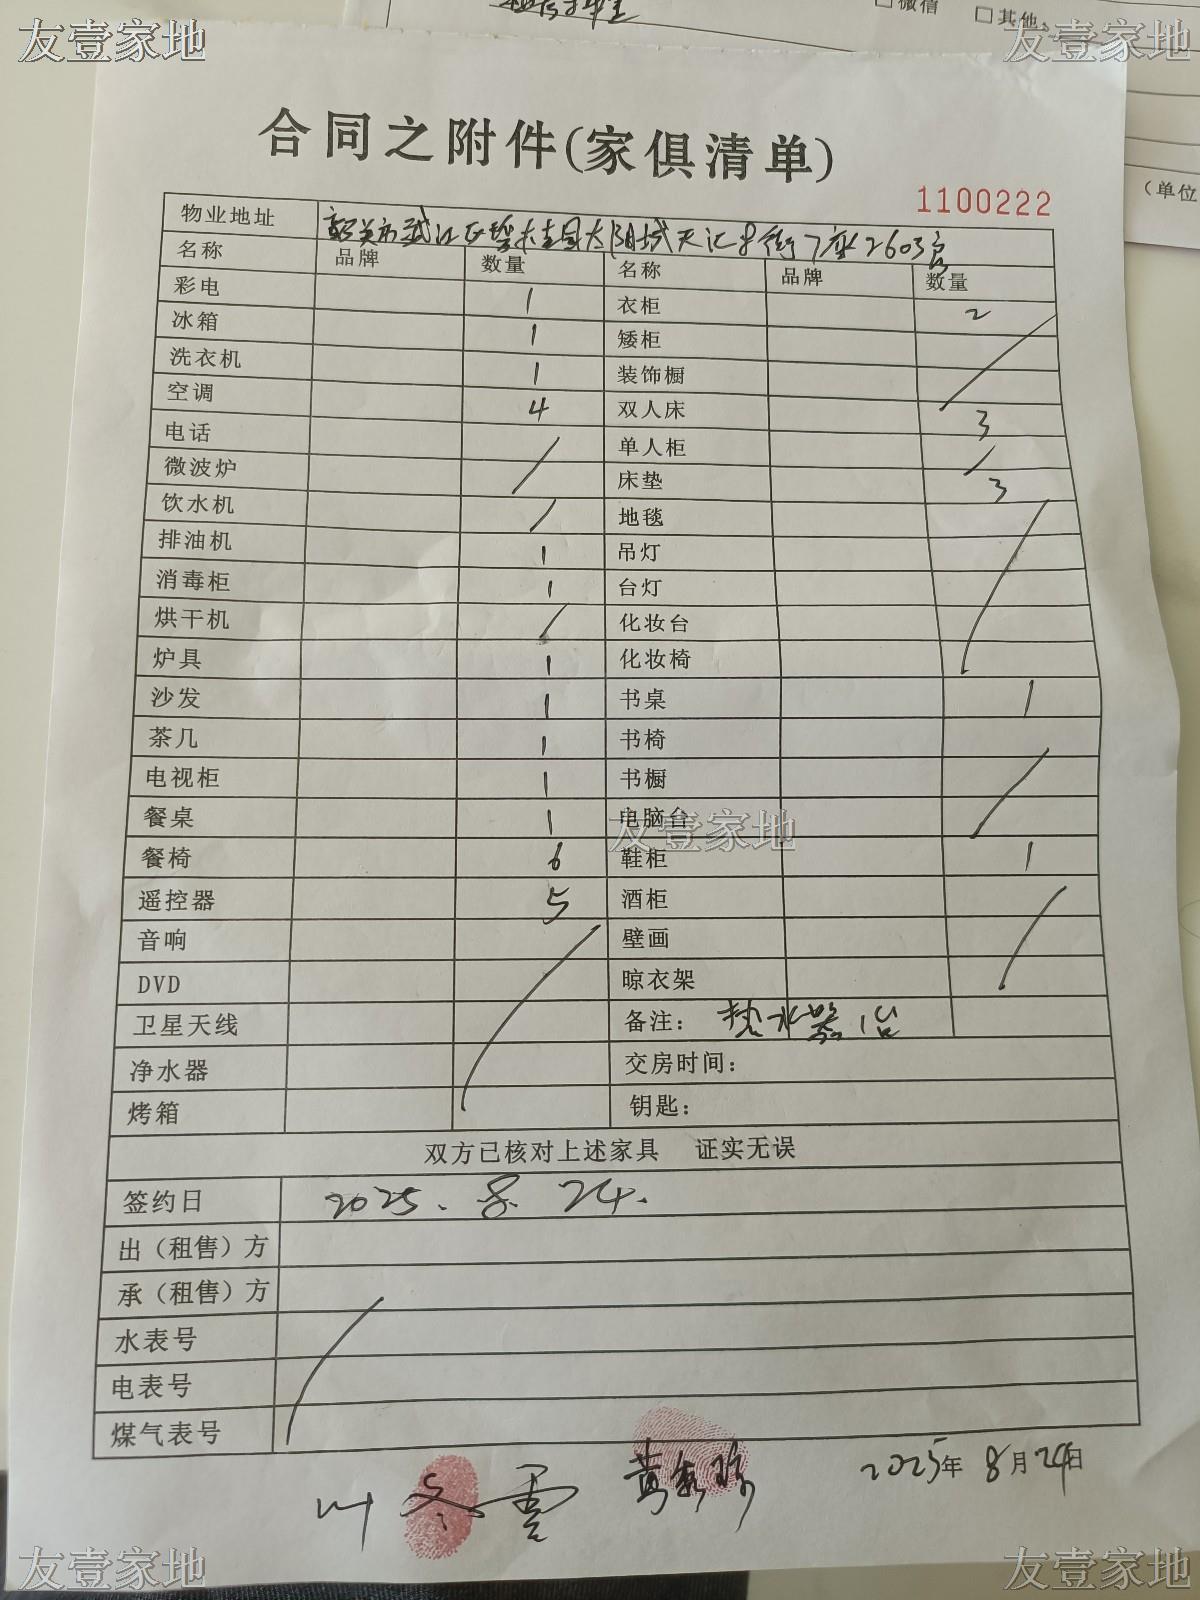 □微信 □其他
友壹家地 友壹家地
合同之附件(家俱清单)
1100222
(单位
物业地址 韶关市武江区碧桂园太阳城天汇8街7座2603房
名称 品牌 数量 名称 品牌 数量
彩电 1 衣柜 2
冰箱 1 矮柜
洗衣机 1 装饰橱
空调 4 双人床 3
电话 单人柜
微波炉 床垫 3
饮水机 地毯
排油机 1 吊灯
消毒柜 1 台灯
烘干机 化妆台
炉具 1 化妆椅
沙发 1 书桌 1
茶几 1 书椅
电视柜 1 书橱
餐桌 1 电脑台
友壹家地
餐椅 6 鞋柜 1
遥控器 5 酒柜
音响 壁画
DVD 晾衣架
卫星天线 备注: 热水器1台
净水器 交房时间:
烤箱 钥匙:
双方已核对上述家具 证实无误
签约日 2025.8.24.
出(租售)方
承(租售)方
水表号
电表号
煤气表号
叶冬雲 2025年8月24日
友壹家地 友壹家地